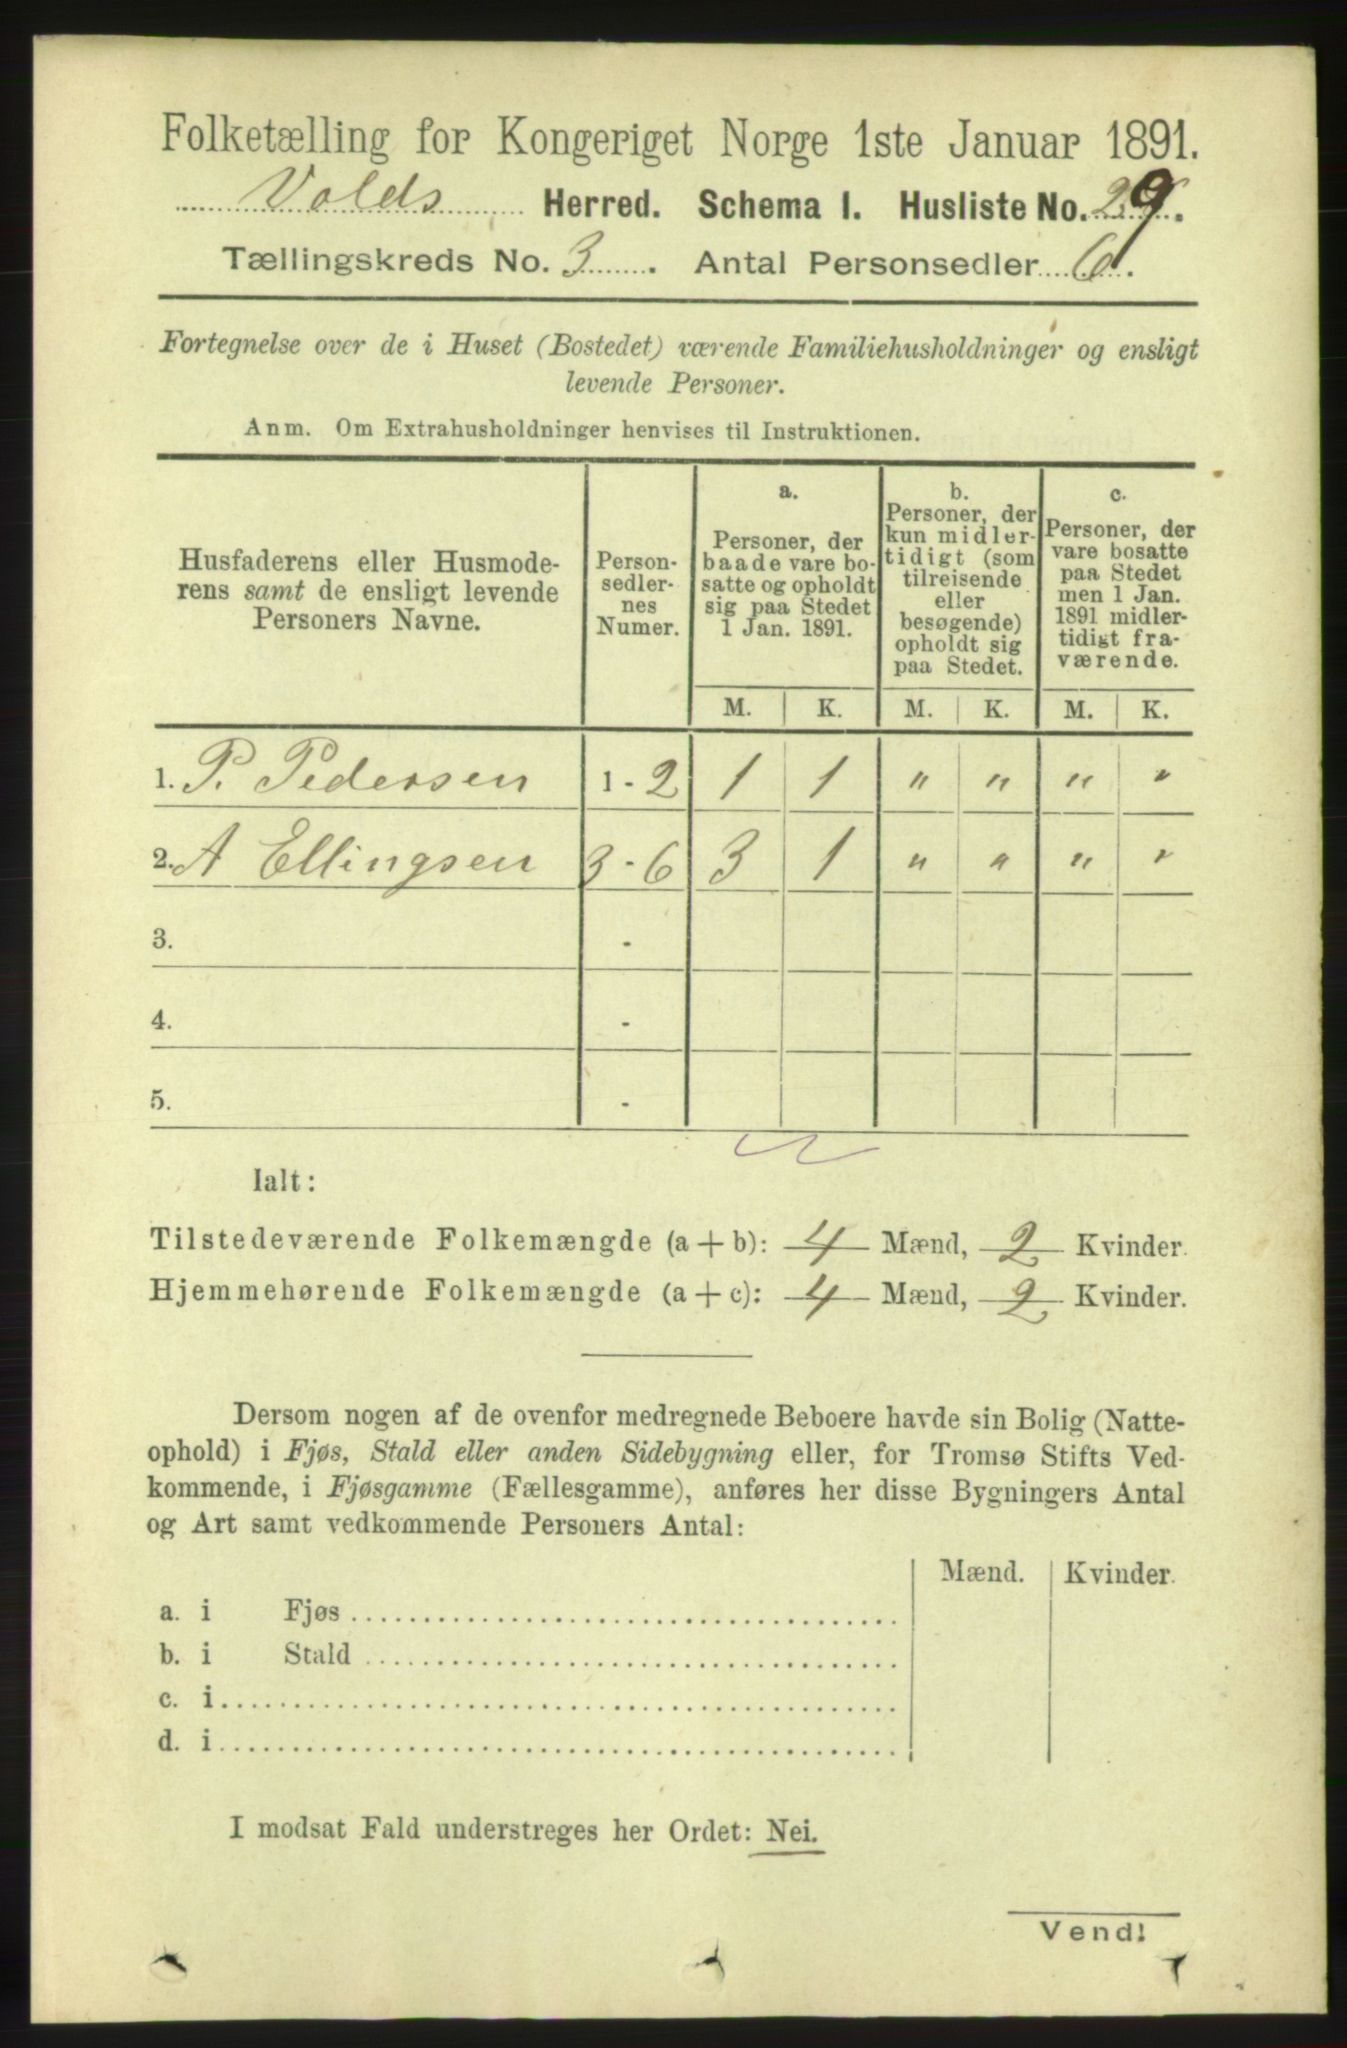 Folketælling for Kongeriget Norge 1ste Januar 1891.
Volds Herred. Schema I. Husliste No. 29.
Tællingskreds No. 3. Antal Personsedler 6.
Fortegnelse over de i Huset (Bostedet) værende Familiehusholdninger og ensligt
levende Personer.
Anm. Om Extrahusholdninger henvises til Instruktionen.
Husfaderens eller Husmode-
rens samt de ensligt levende
Personers Navne.
Person-
sedler-
nes
Numer.
a.
Personer, der
baade vare bo-
satte og opholdt
sig paa Stedet
1 Jan. 1891.
b.
Personer, der
kun midler-
tidigt (som
tilreisende
eller
besøgende)
opholdt sig
paa Stedet.
c.
Personer, der
vare bosatte
paa Stedet
men 1 Jan.
1891 midler-
tidigt fra-
værende.
M. K. M. K. M. K.
1. P. Pedersen 1 - 2 1 1 " " " "
2. A Ellingsen 3 - 6 3 1 " " " "
3. -
4. -
5. -
Ialt:
Tilstedeværende Folkemængde (a + b): 4 Mænd, 2 Kvinder.
Hjemmehørende Folkemængde (a + c): 4 Mænd, 2 Kvinder.
Dersom nogen af de ovenfor medregnede Beboere havde sin Bolig (Natte-
ophold) i Fjøs, Stald eller anden Sidebygning eller, for Tromsø Stifts Ved-
kommende, i Fjøsgamme (Fællesgamme), anføres her disse Bygningers Antal
og Art samt vedkommende Personers Antal:
Mænd. Kvinder.
a. i Fjøs
b. i Stald
c. i
d. i
I modsat Fald understreges her Ordet: Nei.
Vend!